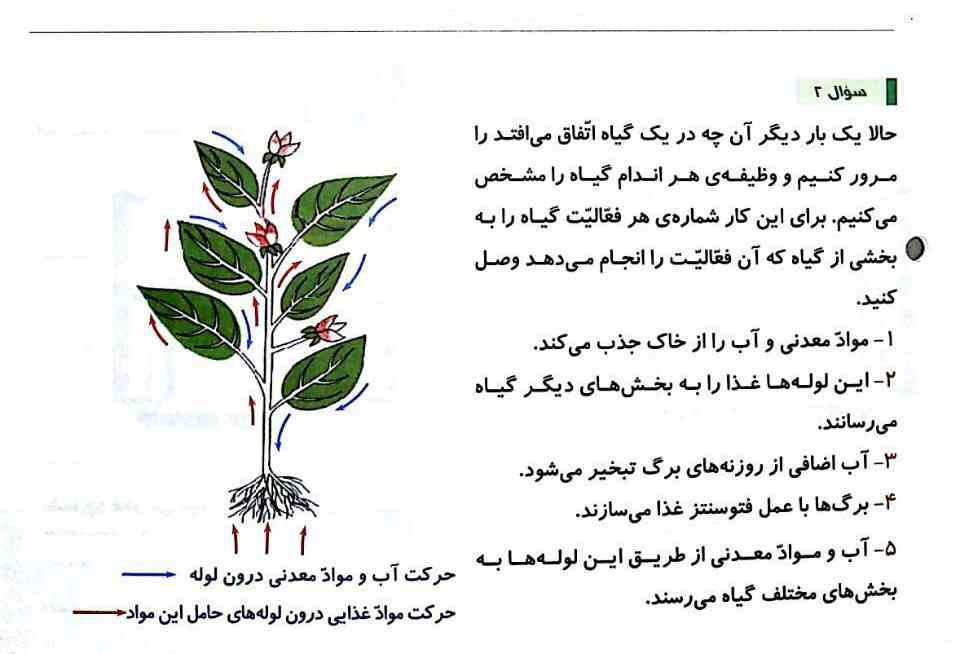 سؤال ۲
حالا یک بار دیگر آن چه در یک گیاه اتّفاق می‌افتد را
مرور کنیم و وظیفه‌ی هر اندام گیاه را مشخص
می‌کنیم. برای این کار شماره‌ی هر فعّالیّت گیاه را به
بخشی از گیاه که آن فعّالیّت را انجام می‌دهد وصل
کنید.
۱- موادّ معدنی و آب را از خاک جذب می‌کند.
۲- این لوله‌ها غذا را به بخش‌های دیگر گیاه
می‌رسانند.
۳- آب اضافی از روزنه‌های برگ تبخیر می‌شود.
۴- برگ‌ها با عمل فتوسنتز غذا می‌سازند.
۵- آب و موادّ معدنی از طریق این لوله‌ها به
بخش‌های مختلف گیاه می‌رسند.
حرکت آب و موادّ معدنی درون لوله
حرکت موادّ غذایی درون لوله‌های حامل این مواد